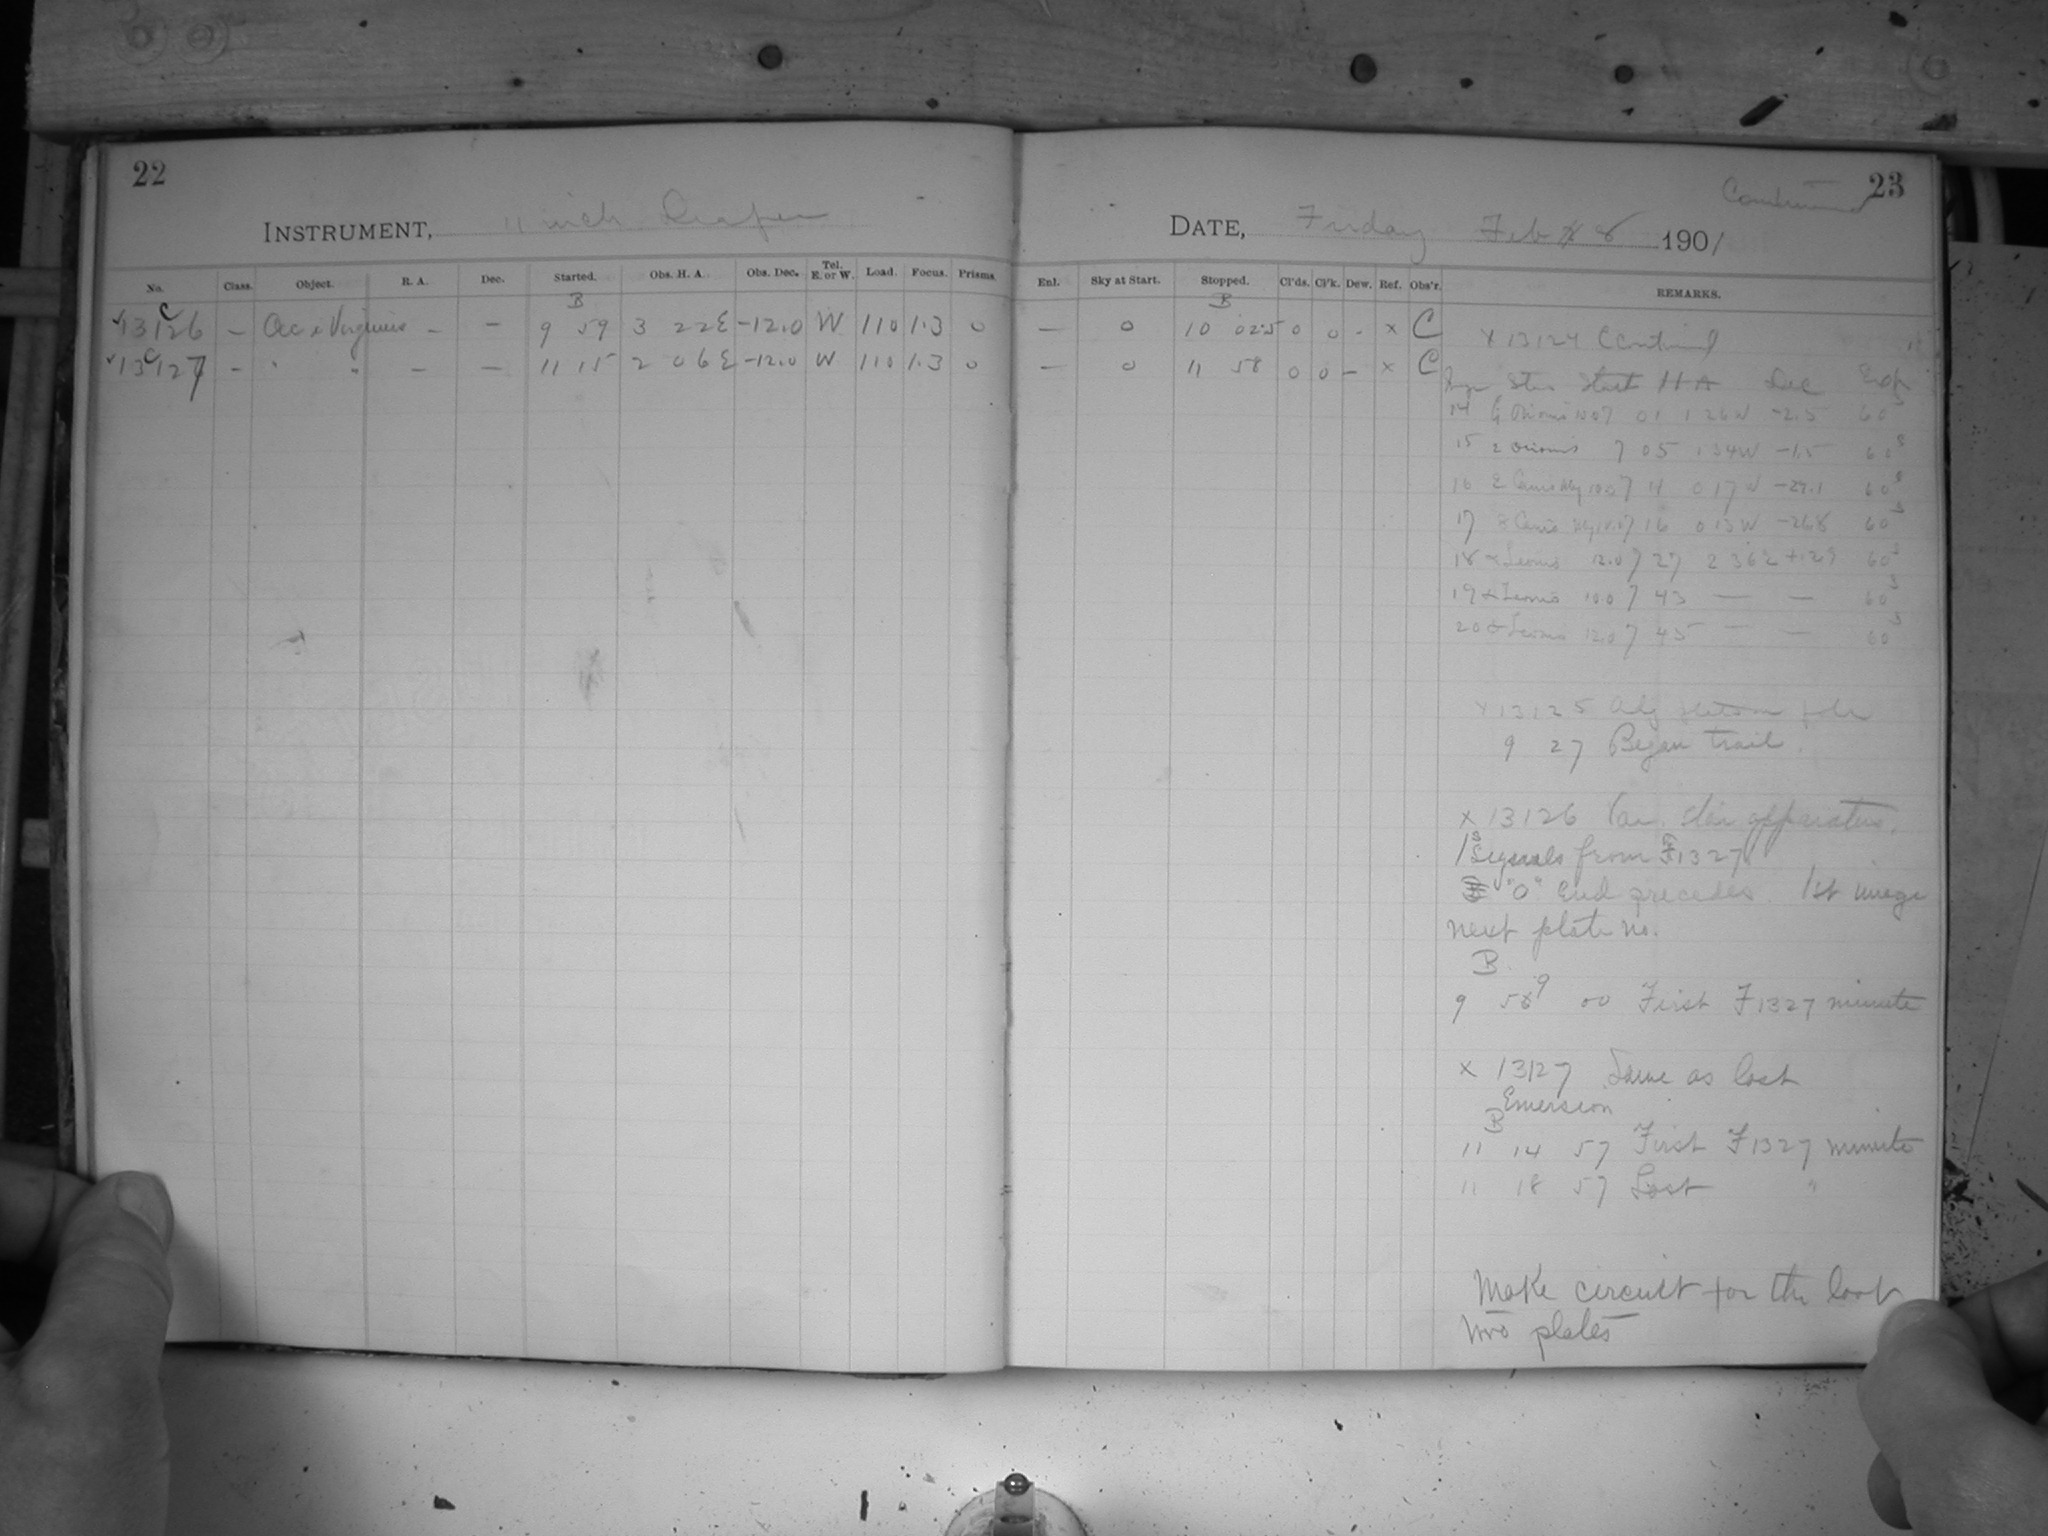 22
INSTRUMENT, 11 inch Draper
No. Class. Object. R. A. Dec. Started. Obs. H. A. Obs. Dec. Tel. E. or W. Load. Focus. Prisms.
B
C 13126 — Occ Virginis — — 9 59 3 22 E -12.0 W 110 1.3 0
C 13127 — " " — — 11 15 2 06 E -12.0 W 110 1.3 0
23
Continued
DATE, Friday Feb 8 1901
Enl. Sky at Start. Stopped. Cl'ds. Cl'k. Dew. Ref. Obs'r. REMARKS.
B
— 0 10 02.5 0 0 - x C
— 0 11 58 0 0 — x C
x 13124 Continued
Star Start H A Dec Exp
14 Orionis 7 01 1 26 W -2.5 60s
15 Orionis 7 05 1 34 W -1.5 60s
16 7 11 0 17 W -29.1 60s
17 7 16 0 13 W -26.8 60s
18 Leonis 12.0 7 27 2 36 E +12.9 60s
19 Leonis 10.0 7 43 — — 60s
20 Leonis 12.0 7 45 — — 60s
x 13125
9 27 Began trail.
x 13126 apparatus.
1s Signals from F1327
"0" End precedes. 1st image
next plate no.
B
9 9 00 First F1327 minute
x 13127 Same as last
Emersion
B
11 14 57 First F1327 minute
11 18 57 Last "
Make circuit for the last
two plates